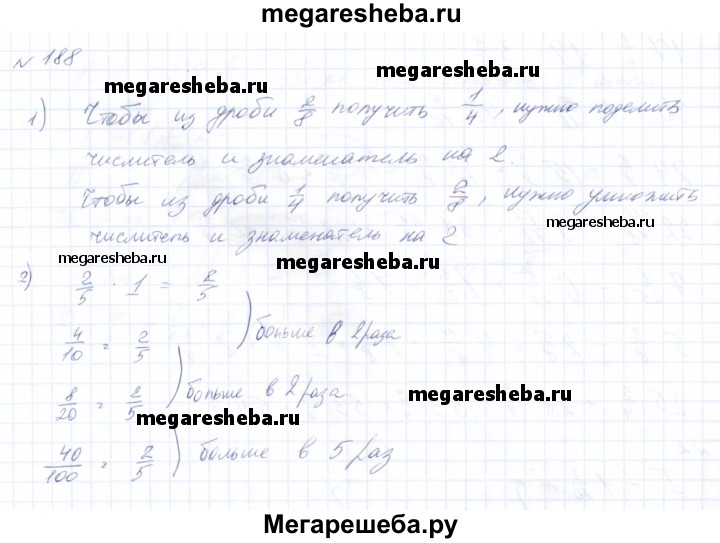 megaresheba.ru
№ 188
megaresheba.ru
megaresheba.ru
1) Чтобы из дроби 2/8 получить 1/4, нужно поделить
числитель и знаменатель на 2.
Чтобы из дроби 1/4 получить 2/8, нужно умножить
megaresheba.ru
числитель и знаменатель на 2
megaresheba.ru
megaresheba.ru
2) 2/5 · 1 = 2/5
4/10 = 2/5 ) больше в 2 раза
8/20 = 2/5 ) больше в 2 раза
megaresheba.ru
megaresheba.ru
40/100 = 2/5 ) больше в 5 раз
Мегарешеба.ру